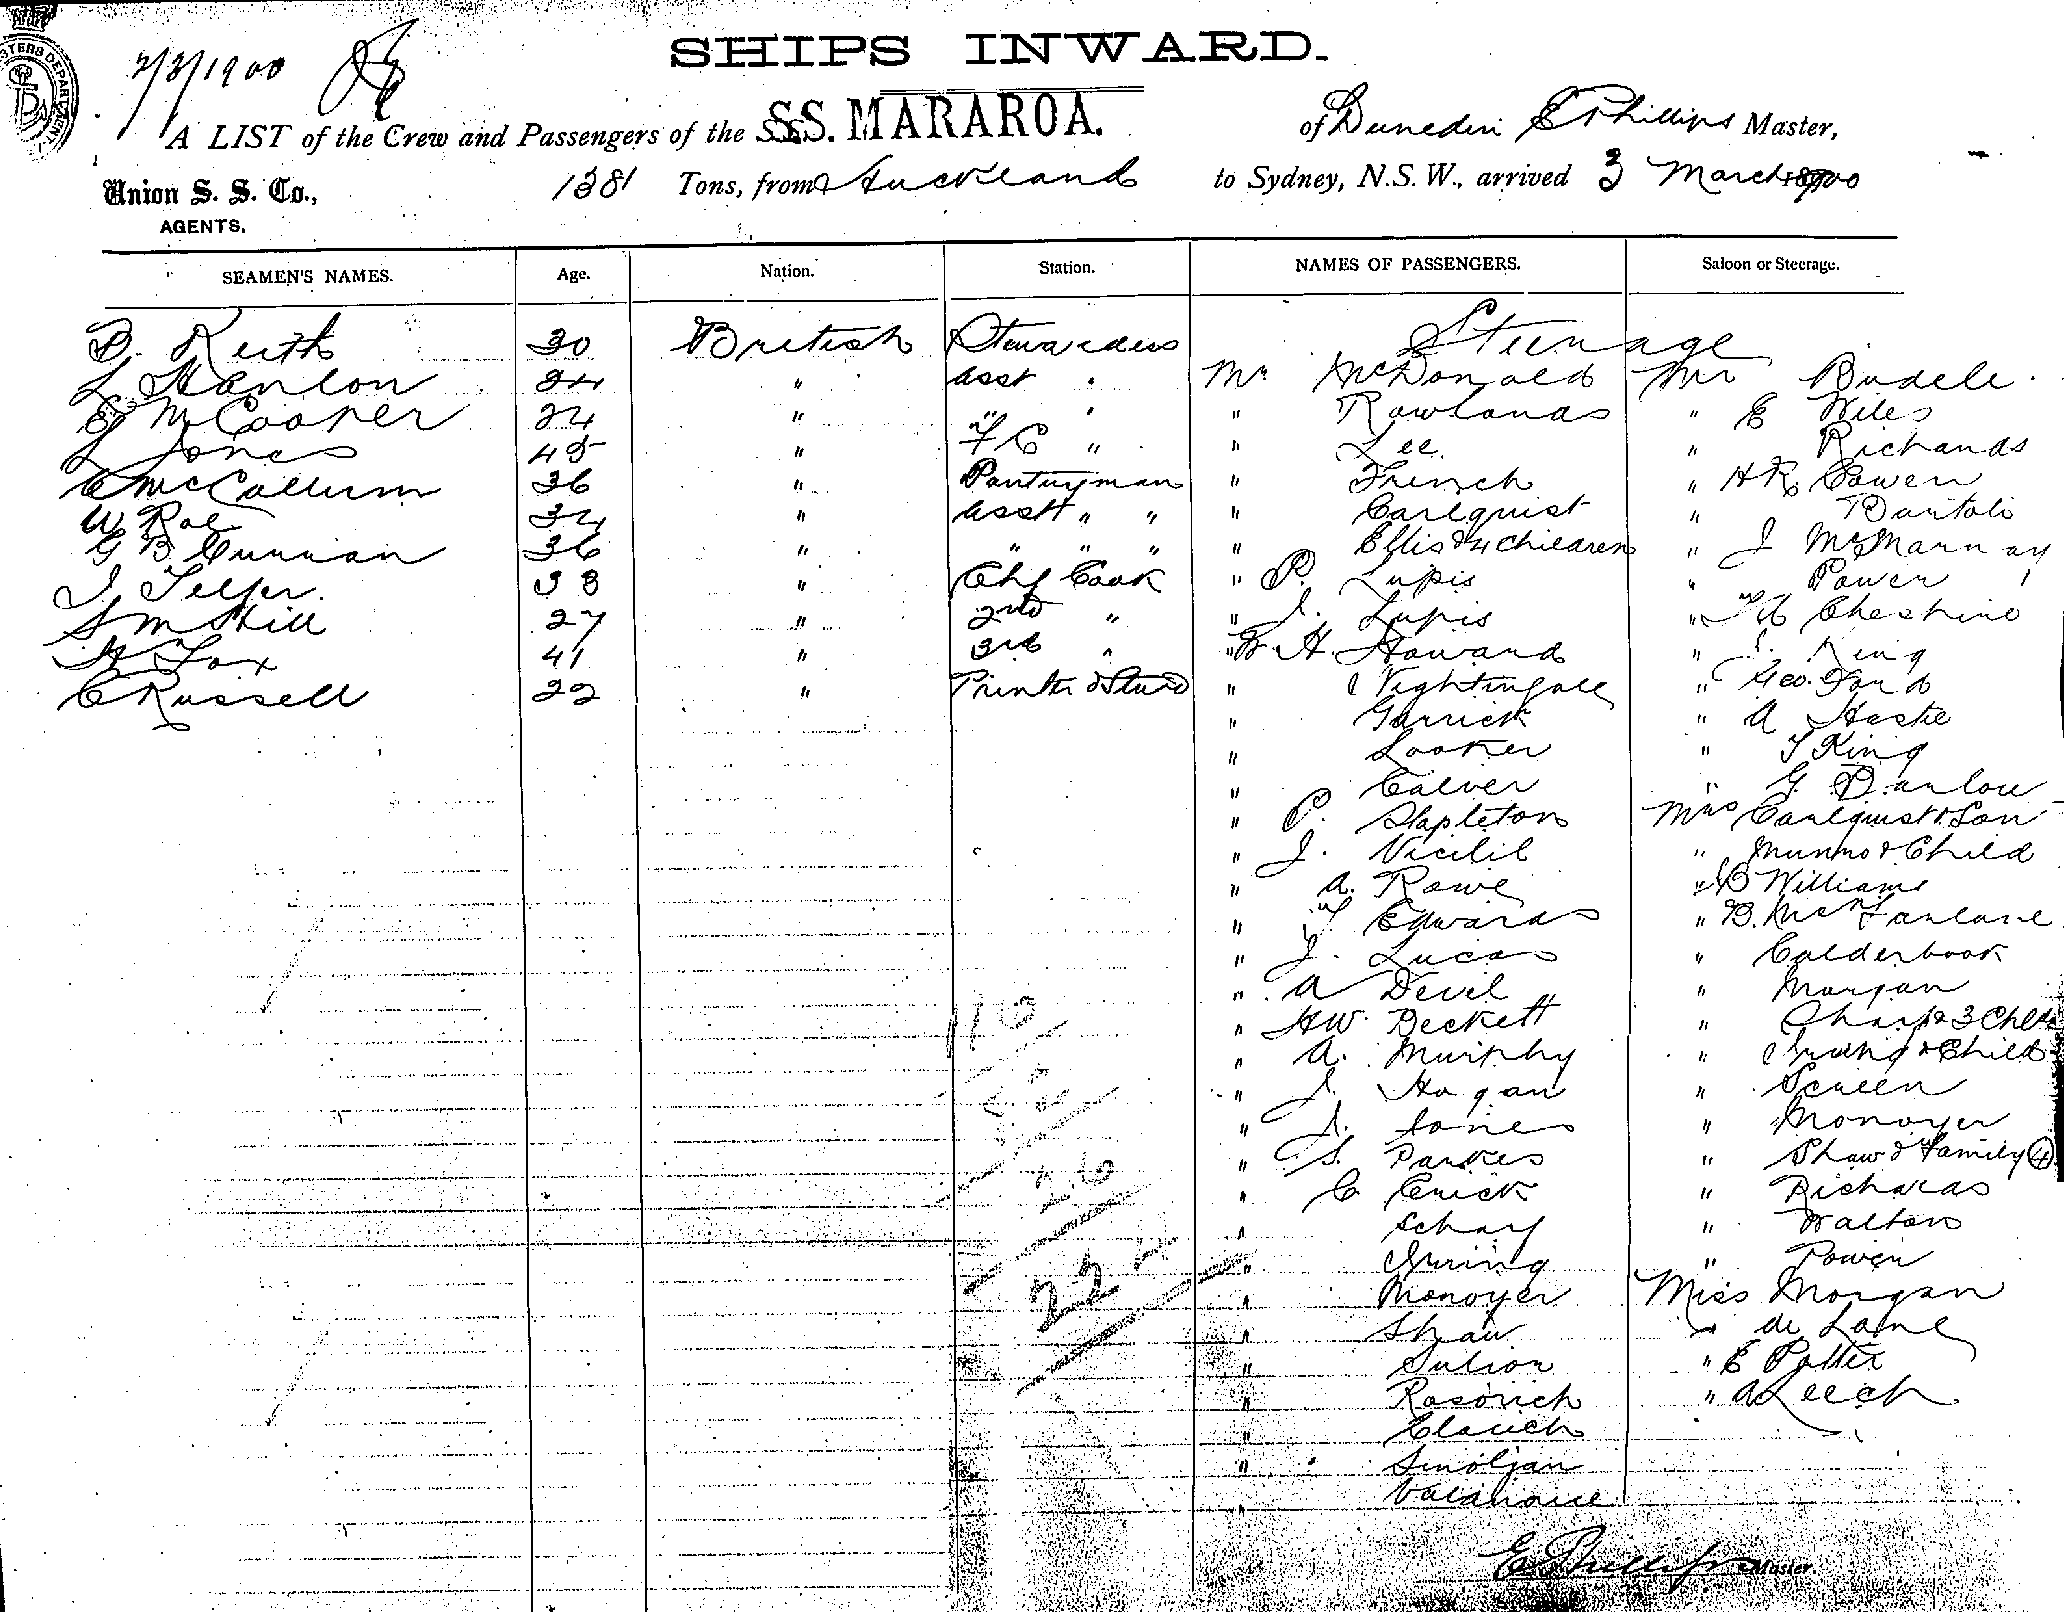 2/3/1900
SHIPS INWARD.
A LIST of the Crew and Passengers of the S.S. MARAROA. of Dunedin E Phillips Master,
Union S. S. Co., 1381 Tons, from Auckland to Sydney, N.S.W., arrived 3 March 1900
AGENTS.
SEAMEN'S NAMES. Age. Nation. Station. NAMES OF PASSENGERS. Saloon or Steerage.
Steerage
B. Keith 30 British Stewardess
L Hanlon 24 " asst " Mr McDonald Mr Budele.
E McCooper 24 " " " " Rowlands " E Wiles
L Jones 45 " F C " " Lee. " Richards
C McCallum 36 " Pantryman " French " H R Cowen
W Rae 34 " asst " " " Carlquist " Bartoli
G B Curran 36 " " " " " Ellis & 4 Children " J
J. Telfer. 38 " Chf Cook " P. Lupis " Power
S M Hill 27 " 2nd " " J. Lupis " Cheshire
H Fox 41 " 3rd " " W H. Howard " J. King
C Russell 22 " Printer & Stwd " Nightingale " Geo. Ford
" Garrick " A Haste
" Looker " T King
" Calver " G Barlow
" P. Stapleton Mrs Carlquist & Son
" J. " Munro & Child
" A. Rowe " Williams
" T Edwards " B. McFarlane
" J. Lucas " Calderbook
" A Devil " Morgan
" H W. Beckett " Sharp & 3 Chld
" A. Murphy " Irving & Child
" J. Hogan " Screen
" J. Jones " Monoyer
" S. Parkes " Shaw & Family (4)
" C Crick " Richards
" Scharf " Walton
" Irving " Power
" Monoyer Miss Morgan
" Shaw " de Lane
" Sulion " E Potter
" Rasovich " A Leech
" Clauch
" Smoljan
"
16
26
222
E. Phillips Master